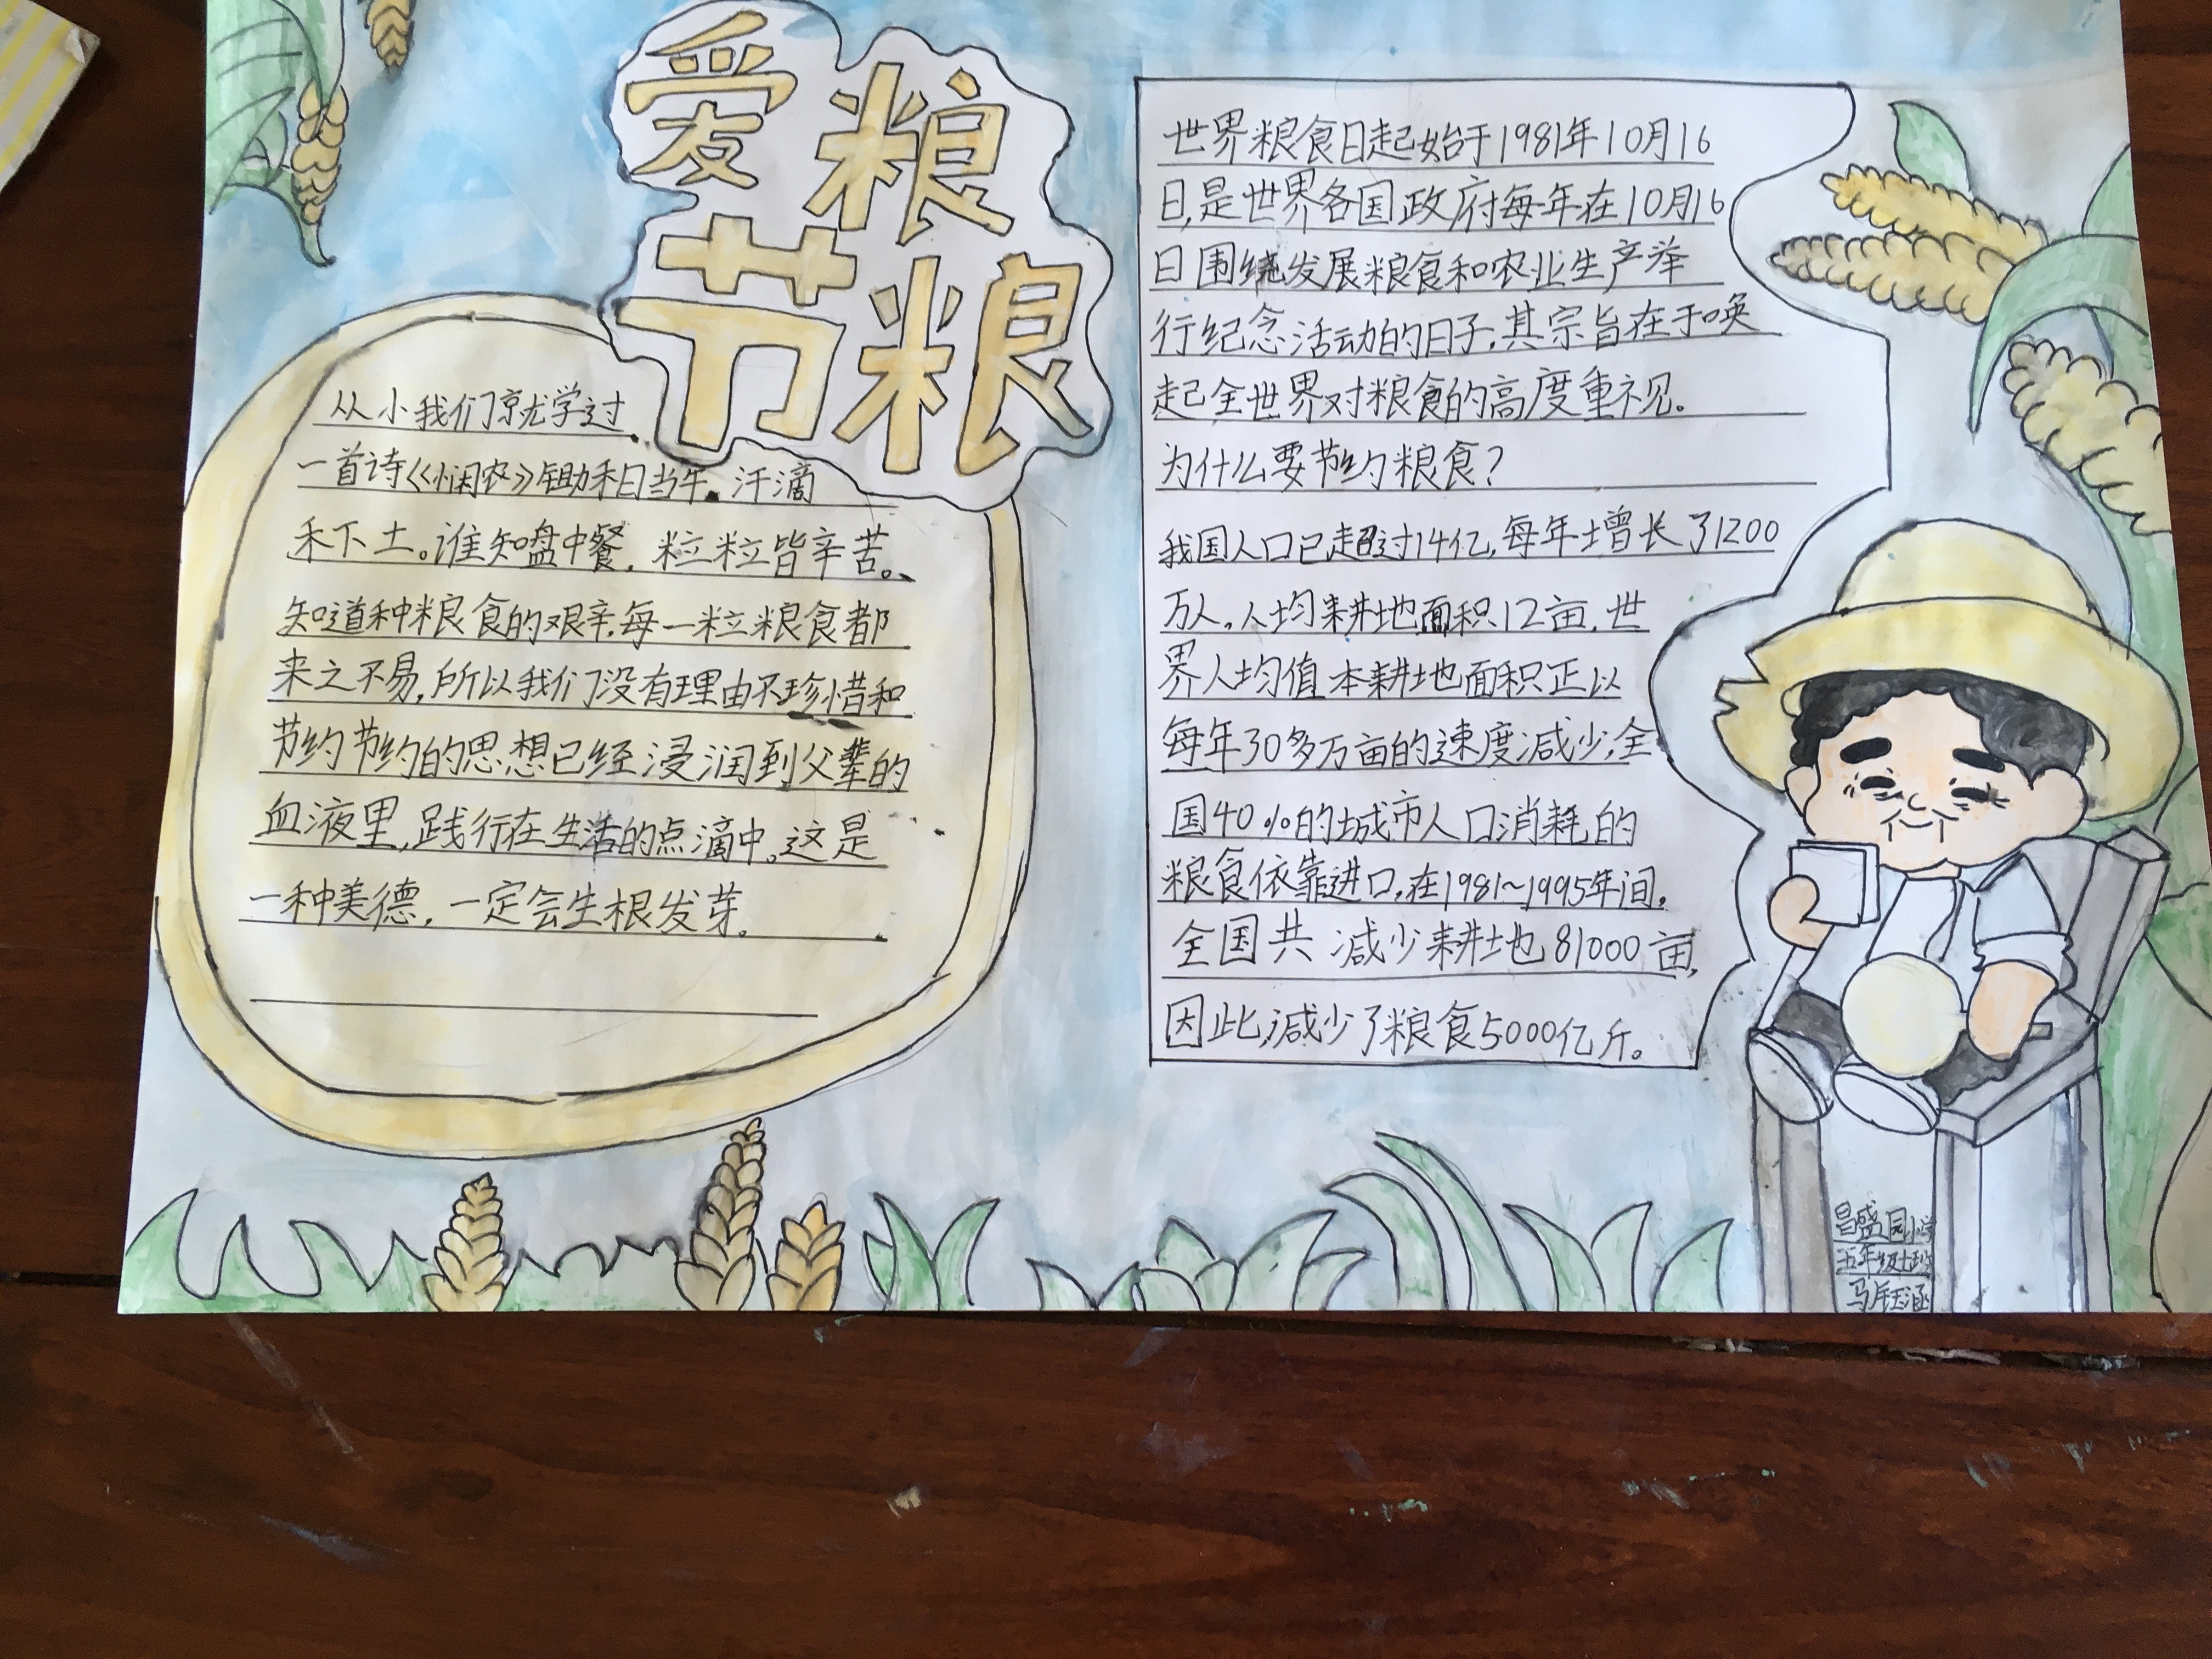 爱粮
节粮
从小我们就学过
一首诗《悯农》锄禾日当午,汗滴
禾下土。谁知盘中餐,粒粒皆辛苦。
知道种粮食的艰辛,每一粒粮食都
来之不易,所以我们没有理由不珍惜和
节约节约的思想已经浸润到父辈的
血液里,践行在生活的点滴中。这是
一种美德,一定会生根发芽。
世界粮食日起始于1981年10月16
日,是世界各国政府每年在10月16
日围绕发展粮食和农业生产举
行纪念活动的日子,其宗旨在于唤
起全世界对粮食的高度重视。
为什么要节约粮食?
我国人口已超过14亿,每年增长了1200
万人。人均耕地面积12亩,世
界人均值本耕地面积正以
每年30多万亩的速度减少,全
国40%的城市人口消耗的
粮食依靠进口,在1981~1995年间,
全国共减少耕地81000亩,
因此,减少了粮食5000亿斤。
昌盛园小学
五年级七班
马钰涵